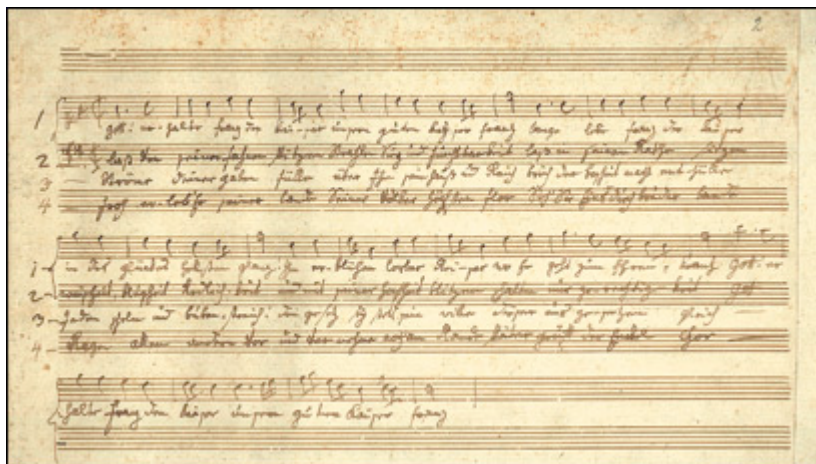 2
1 gott! er-halte franz den Kai-ser unsern guten Kaiser franz lange lebe franz der Kaiser
2 laß von seiner fahnen Spitzen Sieg und fruchtbarkeit laß in seinem Rathe sitzen
3 Ströme deiner gaben fülle über Ihn sein Hauß und Reich brich der bosheit macht ent-hülle
4 froh er-leb Er seiner lande Seiner Völker höchsten flor
1 in des glückes hellstem glanz Ihm er-blühen lorber Rei-ser wo Er geht zum Ehren-kranz Gott! er
2 weisheit, Klugheit Redlich-keit und mit seiner hoheit blitzen nur ge-rechtig-keit Gott
3 jeden schelm und buben-streich: dein gesetz sey stets sein wille dieser uns gleich
4 Ragen allen andern vor und noch am Rande später gruft der Enkel Chor
halte franz den Kaiser unsern guten Kaiser franz